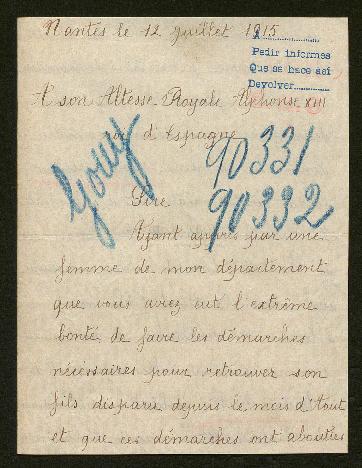 Nantes le 12 juillet 1915
A
Pedir informes
Que se hace así
Devolver
A son Altesse Royale Alphonse XIII
roi d'Espagne
Gouy
90331
90332
Sire
Ayant appris par une
femme de mon département
que vous aviez eut l'extrême
bonté de faire les démarches
nécessaires pour retrouver son
fils disparu depuis le mois d'Aout
et que ces démarches ont abouties